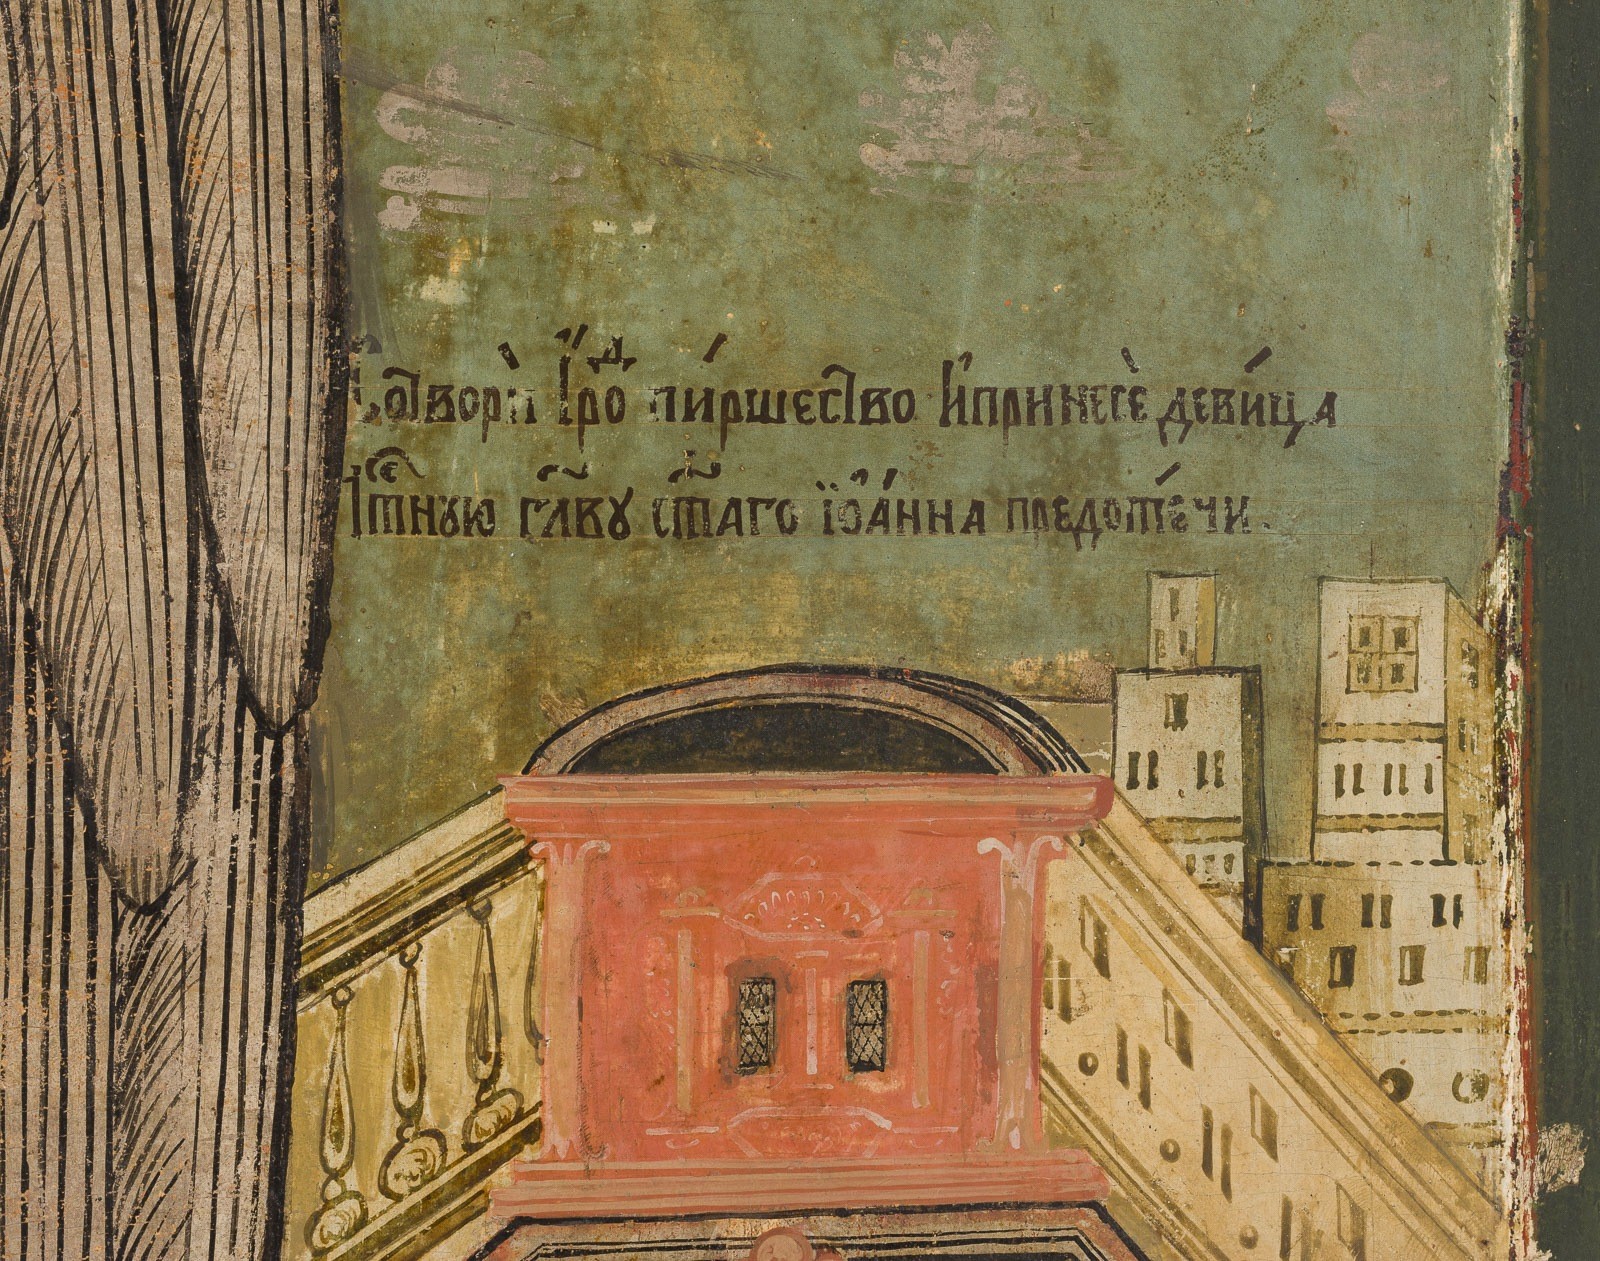 Сотворѝ І҆́рⷣо пи́ршество И҆принесѐ деви́ца
чⷭ҇тную гл҃ву ст҃аго їѡа́нна предоте́чи.